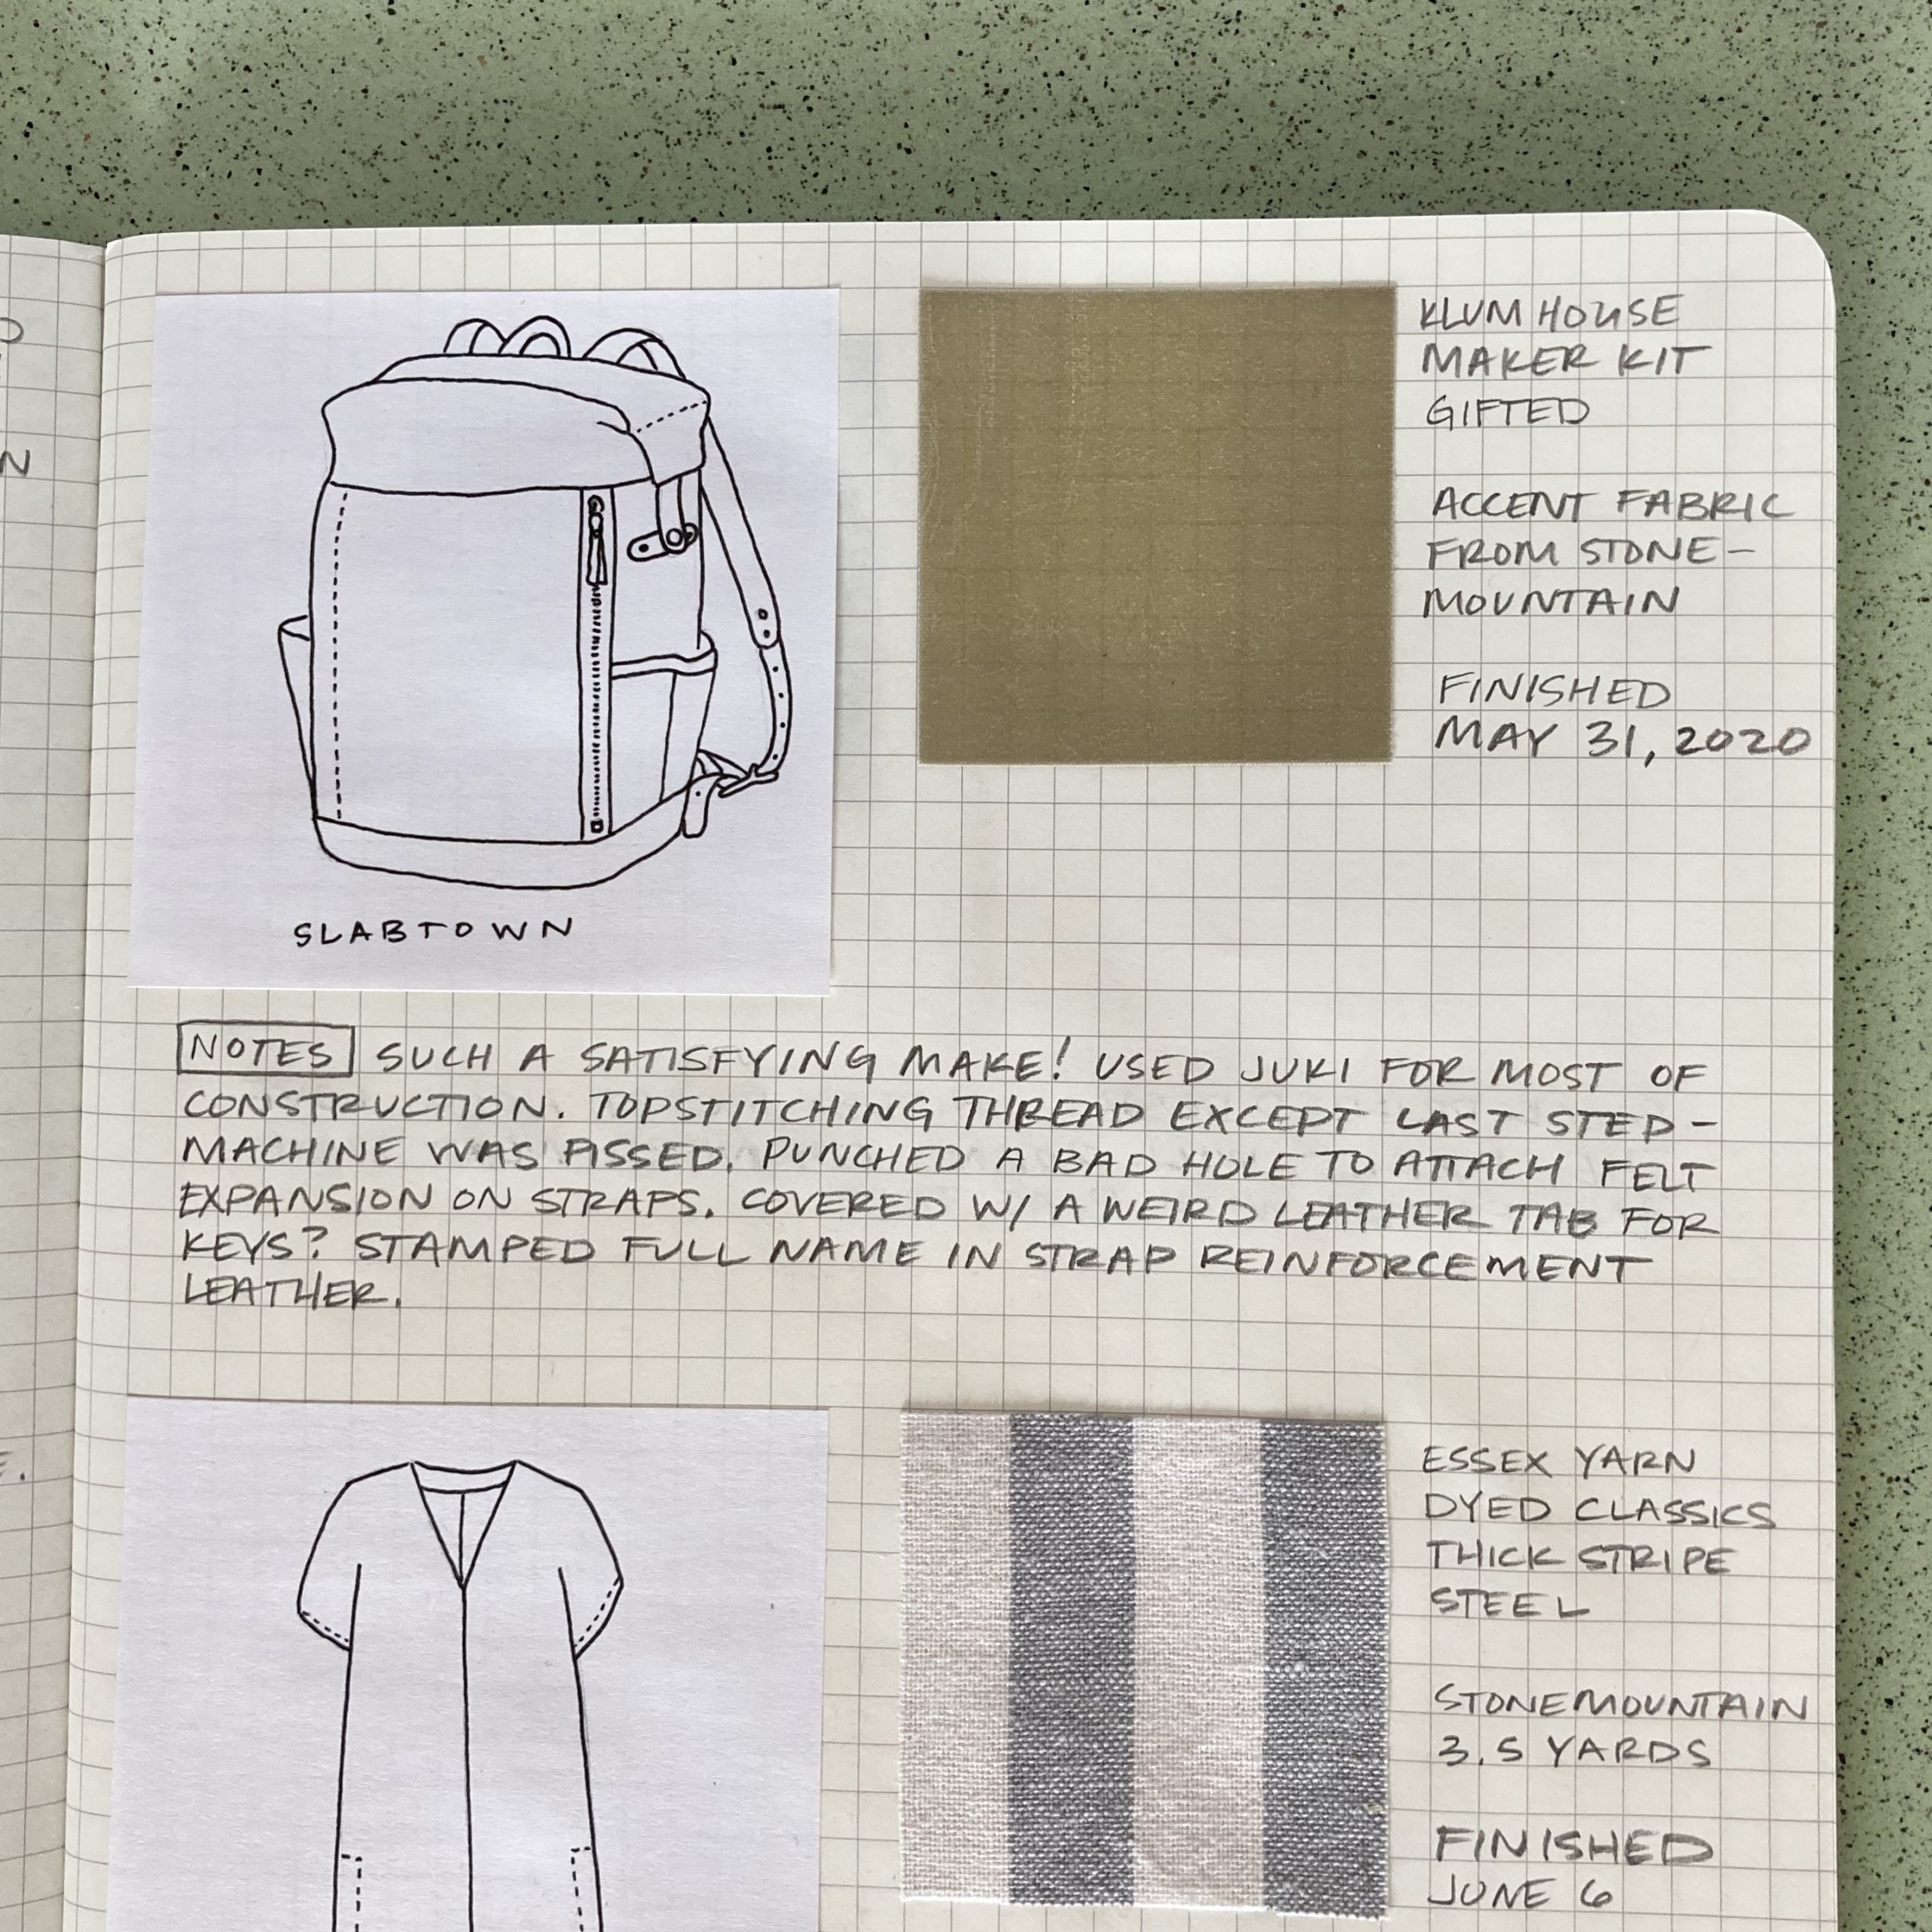 KLUM HOUSE
MAKER KIT
GIFTED
ACCENT FABRIC
FROM STONE-
MOUNTAIN
FINISHED
MAY 31, 2020
SLABTOWN
NOTES SUCH A SATISFYING MAKE! USED JUKI FOR MOST OF
CONSTRUCTION. TOPSTITCHING THREAD EXCEPT LAST STEP -
MACHINE WAS PISSED. PUNCHED A BAD HOLE TO ATTACH FELT
EXPANSION ON STRAPS. COVERED W/ A WEIRD LEATHER TAB FOR
KEYS? STAMPED FULL NAME IN STRAP REINFORCEMENT
LEATHER.
ESSEX YARN
DYED CLASSICS
THICK STRIPE
STEEL
STONEMOUNTAIN
3.5 YARDS
FINISHED
JUNE 6